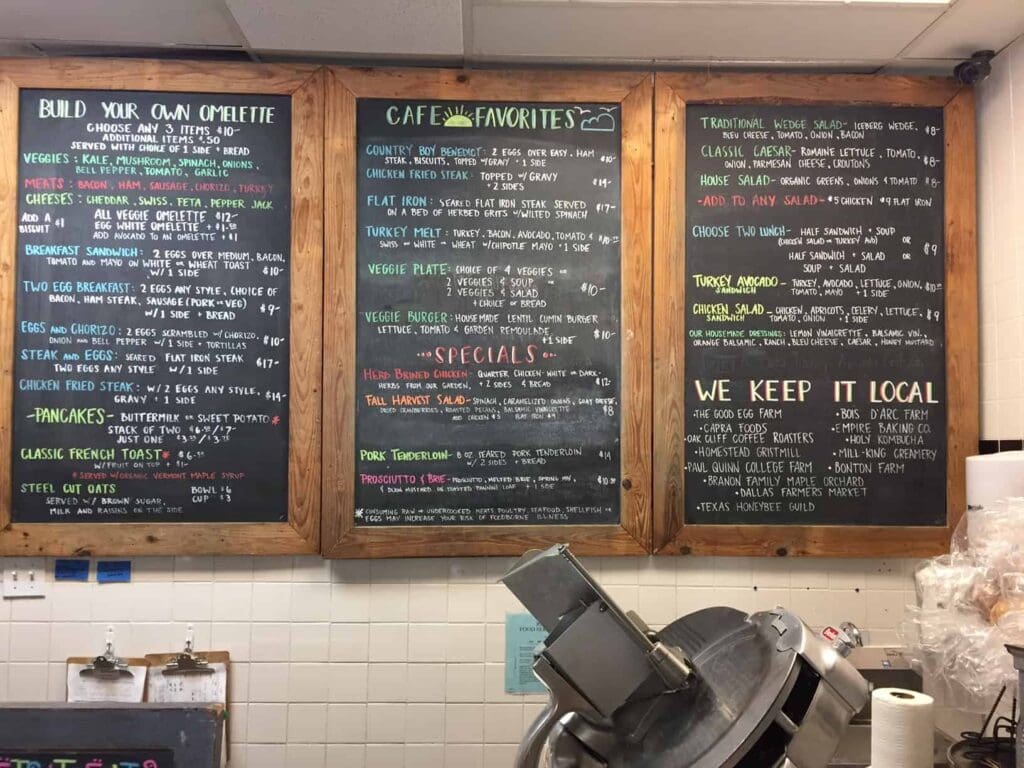 BUILD YOUR OWN OMELETTE
CHOOSE ANY 3 ITEMS $10-
ADDITIONAL ITEMS $.50
SERVED WITH CHOICE OF 1 SIDE + BREAD
VEGGIES: KALE, MUSHROOM, SPINACH, ONIONS,
BELL PEPPER, TOMATO, GARLIC
MEATS: BACON, HAM, SAUSAGE, CHORIZO, TURKEY
CHEESES: CHEDDAR, SWISS, FETA, PEPPER JACK
ADD A BISCUIT $1
ALL VEGGIE OMELETTE $12-
EGG WHITE OMELETTE +$1.50
ADD AVOCADO TO AN OMELETTE +$1
BREAKFAST SANDWICH: 2 EGGS OVER MEDIUM, BACON,
TOMATO AND MAYO ON WHITE OR WHEAT TOAST
W/ 1 SIDE $10-
TWO EGG BREAKFAST: 2 EGGS ANY STYLE, CHOICE OF
BACON, HAM STEAK, SAUSAGE (PORK OR VEG)
W/ 1 SIDE + BREAD $9-
EGGS AND CHORIZO: 2 EGGS SCRAMBLED W/ CHORIZO,
ONION AND BELL PEPPER W/ 1 SIDE + TORTILLAS $10-
STEAK AND EGGS: SEARED FLAT IRON STEAK
TWO EGGS ANY STYLE W/ 1 SIDE $17-
CHICKEN FRIED STEAK: W/ 2 EGGS ANY STYLE,
GRAVY + 1 SIDE $14-
-PANCAKES- BUTTERMILK OR SWEET POTATO*
STACK OF TWO
JUST ONE
CLASSIC FRENCH TOAST* $6.50
W/ FRUIT ON TOP + $1-
*SERVED W/ORGANIC VERMONT MAPLE SYRUP
STEEL CUT OATS BOWL $6
SERVED W/ BROWN SUGAR, CUP $3
MILK AND RAISINS ON THE SIDE
CAFE FAVORITES
COUNTRY BOY BENEDICT: 2 EGGS OVER EASY, HAM
STEAK, BISCUITS, TOPPED W/GRAVY + 1 SIDE $10-
CHICKEN FRIED STEAK: TOPPED W/ GRAVY
+ 2 SIDES $14-
FLAT IRON: SEARED FLAT IRON STEAK SERVED
ON A BED OF HERBED GRITS W/WILTED SPINACH $17-
TURKEY MELT: TURKEY, BACON, AVOCADO, TOMATO &
SWISS ON WHITE OR WHEAT W/CHIPOTLE MAYO + 1 SIDE $10.50
VEGGIE PLATE: CHOICE OF 4 VEGGIES OR
2 VEGGIES & SOUP OR
2 VEGGIES & SALAD $10-
+ CHOICE OF BREAD
VEGGIE BURGER: HOUSEMADE LENTIL CUMIN BURGER
LETTUCE, TOMATO & GARDEN REMOULADE
+ 1 SIDE $10-
SPECIALS
HERB BRINED CHICKEN: QUARTER CHICKEN- WHITE OR DARK-
HERBS FROM OUR GARDEN, + 2 SIDES & BREAD $12-
FALL HARVEST SALAD- SPINACH, CARAMELIZED ONIONS, GOAT CHEESE,
DRIED CRANBERRIES, ROASTED PECANS, BALSAMIC VINAIGRETTE $8
ADD CHICKEN $5 FLAT IRON $9
PORK TENDERLOIN- 8 OZ SEARED PORK TENDERLOIN $14
W/ 2 SIDES + BREAD
PROSCIUTTO & BRIE- PROSCIUTTO, MELTED BRIE, SPRING MIX, $10.50
& DIJON MUSTARD ON TOASTED PANINI LOAF + 1 SIDE
*CONSUMING RAW OR UNDERCOOKED MEATS, POULTRY, SEAFOOD, SHELLFISH OR
EGGS MAY INCREASE YOUR RISK OF FOODBORNE ILLNESS
TRADITIONAL WEDGE SALAD- ICEBERG WEDGE,
BLEU CHEESE, TOMATO, ONION, BACON $8-
CLASSIC CAESAR- ROMAINE LETTUCE, TOMATO,
ONION, PARMESAN CHEESE, CROUTONS $8-
HOUSE SALAD- ORGANIC GREENS, ONIONS & TOMATO $8-
-ADD TO ANY SALAD- $5 CHICKEN $9 FLAT IRON
CHOOSE TWO LUNCH- HALF SANDWICH + SOUP
(CHICKEN SALAD OR TURKEY AVO) OR
HALF SANDWICH + SALAD OR $9
SOUP + SALAD
TURKEY AVOCADO SANDWICH - TURKEY, AVOCADO, LETTUCE, ONION, $10.50
TOMATO, MAYO + 1 SIDE
CHICKEN SALAD SANDWICH - CHICKEN, APRICOTS, CELERY, LETTUCE, $9
TOMATO, ONION + 1 SIDE
OUR HOUSEMADE DRESSINGS: LEMON VINAIGRETTE, BALSAMIC VIN,
ORANGE BALSAMIC, RANCH, BLEU CHEESE, CAESAR, HONEY MUSTARD
WE KEEP IT LOCAL
•THE GOOD EGG FARM
•CAPRA FOODS
•OAK CLIFF COFFEE ROASTERS
•HOMESTEAD GRISTMILL
•PAUL QUINN COLLEGE FARM
•BOIS D'ARC FARM
•EMPIRE BAKING CO.
•HOLY KOMBUCHA
•MILL-KING CREAMERY
•BONTON FARM
•BRANON FAMILY MAPLE ORCHARD
•DALLAS FARMERS MARKET
•TEXAS HONEYBEE GUILD